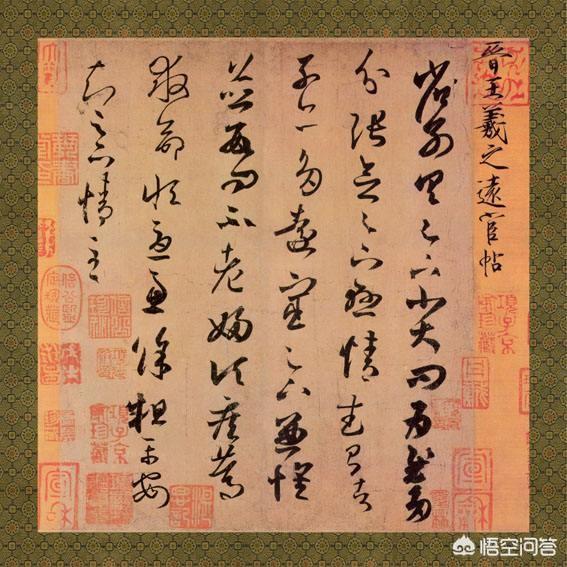 晉王羲之遠宦帖
省別具足下小大問為慰多
分張念足下懸情武昌諸
子亦多遠宦足下兼懷
並數問不老婦頃疾篤
救命恒憂慮餘粗平安
知足下情至
項子京家珍藏
宣和
悟空问答